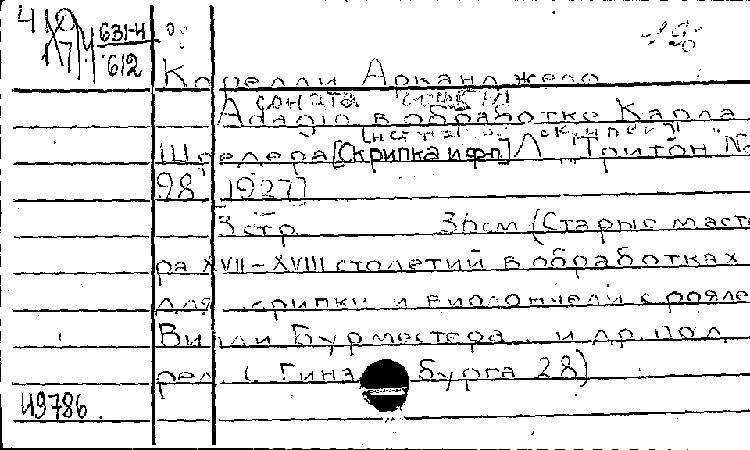 631-4
612
Корелли Арканджело
Соната
Adagio в обработке Карла
Шредера [Скрипка и ф-п] Л "Тритон" №
98 [1927]
3 стр. 36 см (Старые масте
ра XVII–XVIII столетий в обработках
для скрипки и виолончели с рояле
Вилли Бурместера и др. под
ред. С. Гинзбурга 28)
И9786.